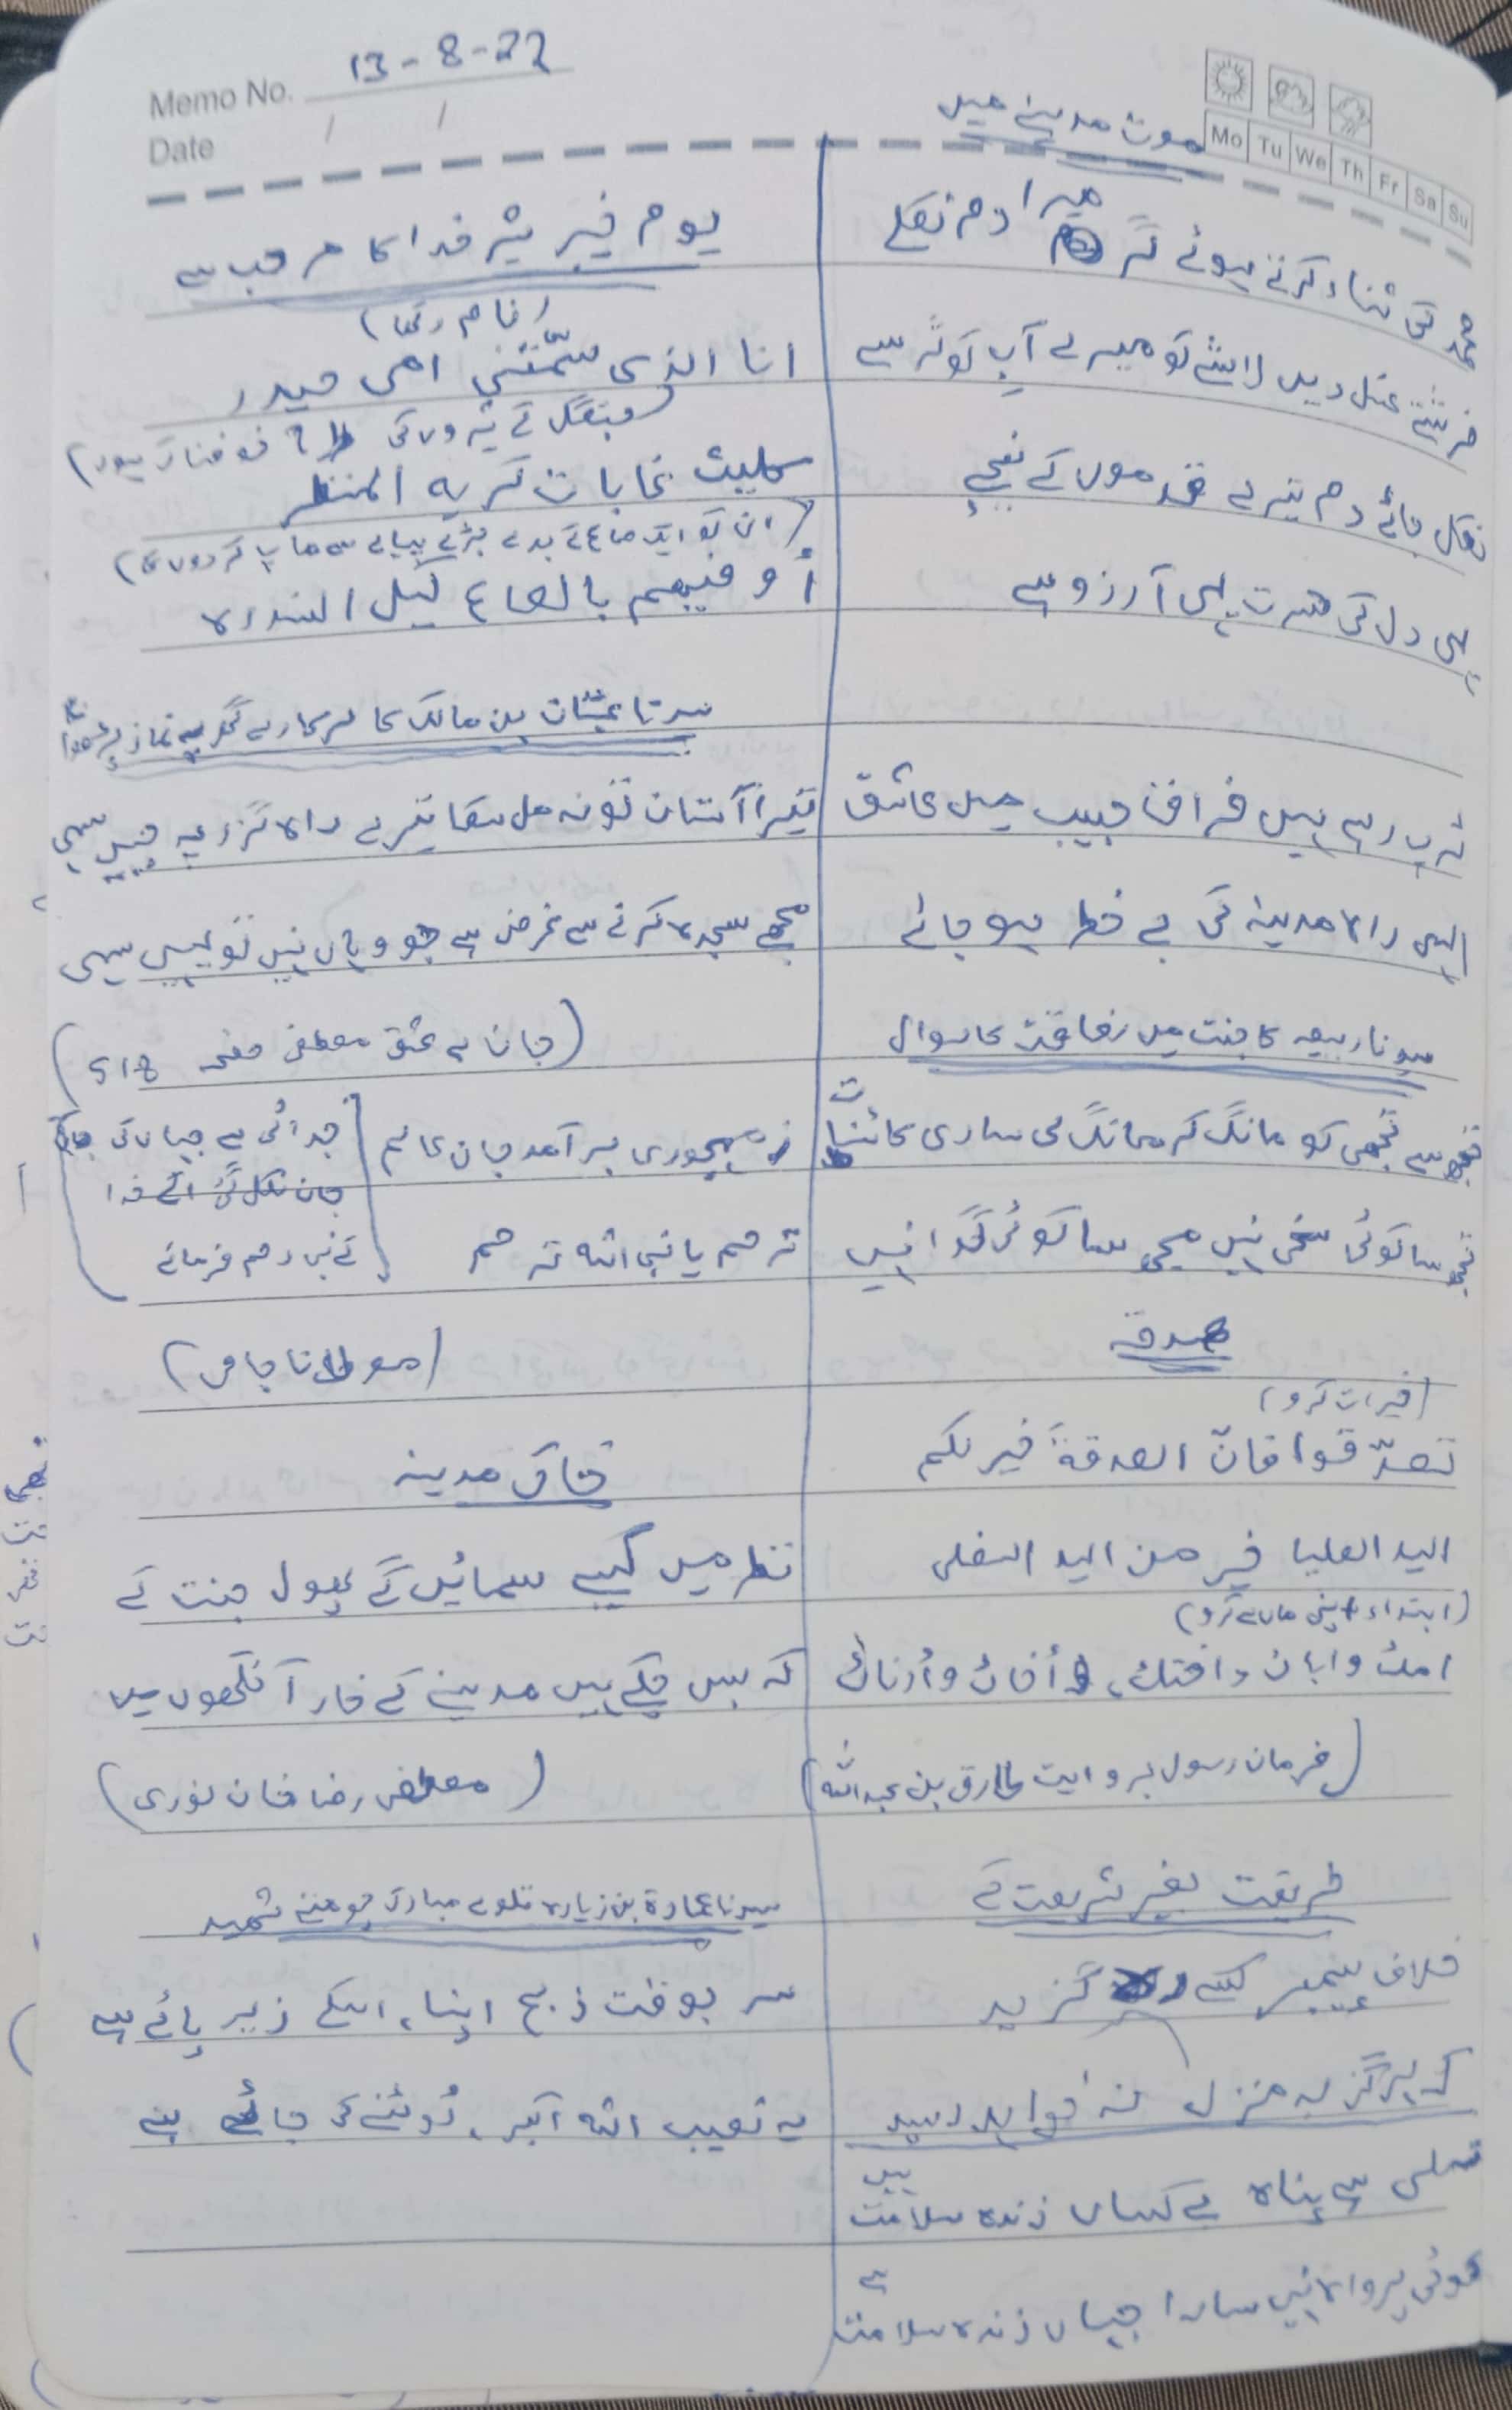 Memo No. 13-8-22
Date / /
Mo Tu We Th Fr Sa Su
موت مدینے میں
محمد کی ثناء کرتے ہوئے گر میرا دم نکلے
فرشتے غسل دیں لاشے کو میرے آب کوثر سے
نکل جائے دم تیرے قدموں کے نیچے
یہی دل کی حسرت یہی آرزو ہے
تڑپ رہے ہیں فراق حبیب میں عاشق
الہی راہ مدینہ کی بے خطر ہو جائے
سیدنا ربیعہ کا جنت میں رفاقت کا سوال
تجھ سے تجھی کو مانگ کر مانگ لی ساری کائنات
تجھ سا کوئی سخی نہیں مجھ سا کوئی گدا نہیں
صدقہ
(خیرات کرو)
تصدّقوا فانّ الصدقةَ خیر لکم
الید العلیا خیر من الید السفلی
(ابتداء اپنی ماں سے کرو)
امك و اباك و اختك، و أخاك و أدناك
(فرمان رسول بروایت طارق بن عبداللہ)
طریقت بغیر شریعت کے
خلاف پیمبر کسے راہ گزید
کہ ہرگز بہ منزل نہ خواہد رسید
تسلی ہے پناہ بے کساں زندہ سلامت ہیں
کوئی پرواہ نہیں سارا جہاں زندہ سلامت ہے
یوم خیبر شیر خدا کا مرحب سے
(نام رکھا)
انا الذی سمّتنی امی حیدر
(جنگل کے شیروں کی طرح خوفناک ہوں)
کلیث غابات کریہ المنظر
(ان کو ایک صاع کے بدلے بڑے پیمانے سے ماپ کر دوں گا)
أوفیهم بالصاع کیل السندرہ
سیدنا عتبان بن مالک کا سرکار سے گھر پہ نماز پڑھوانا
تیرا آستاں تو نہ مل سکا تیرے راہ گزر پہ جبیں سہی
مجھے سجدہ کرنے سے غرض ہے جو وہاں نہیں تو یہیں سہی
(جان ہے عشق مصطفی صفحہ 518)
ز مہجوری برآمد جان عالم
ترحم یا نبی اللہ ترحم
جدائی سے جہاں کی جان
جان نکل گئی اے خدا
کے نبی رحم فرمائے
(مولانا جامی)
خاک مدینہ
نظر میں کیسے سمائیں گے پھول جنت کے
کہ بس چکے ہیں مدینے کے خار آنکھوں میں
(مصطفی رضا خان نوری)
سیدنا عمارة بن زیاد تلوے مبارک چومتے شہید
سر بوقت ذبح اپنا، اسکے زیر پائے ہے
یہ نصیب اللہ اکبر، لوٹنے کی جائے ہے